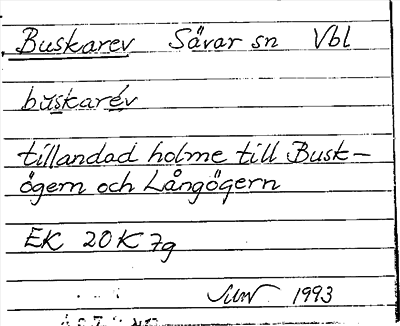 Buskarev Sävar sn Vbl
buskarév
tillandad holme till Busk-
ögern och Långögern
EK 20K 7g
1993